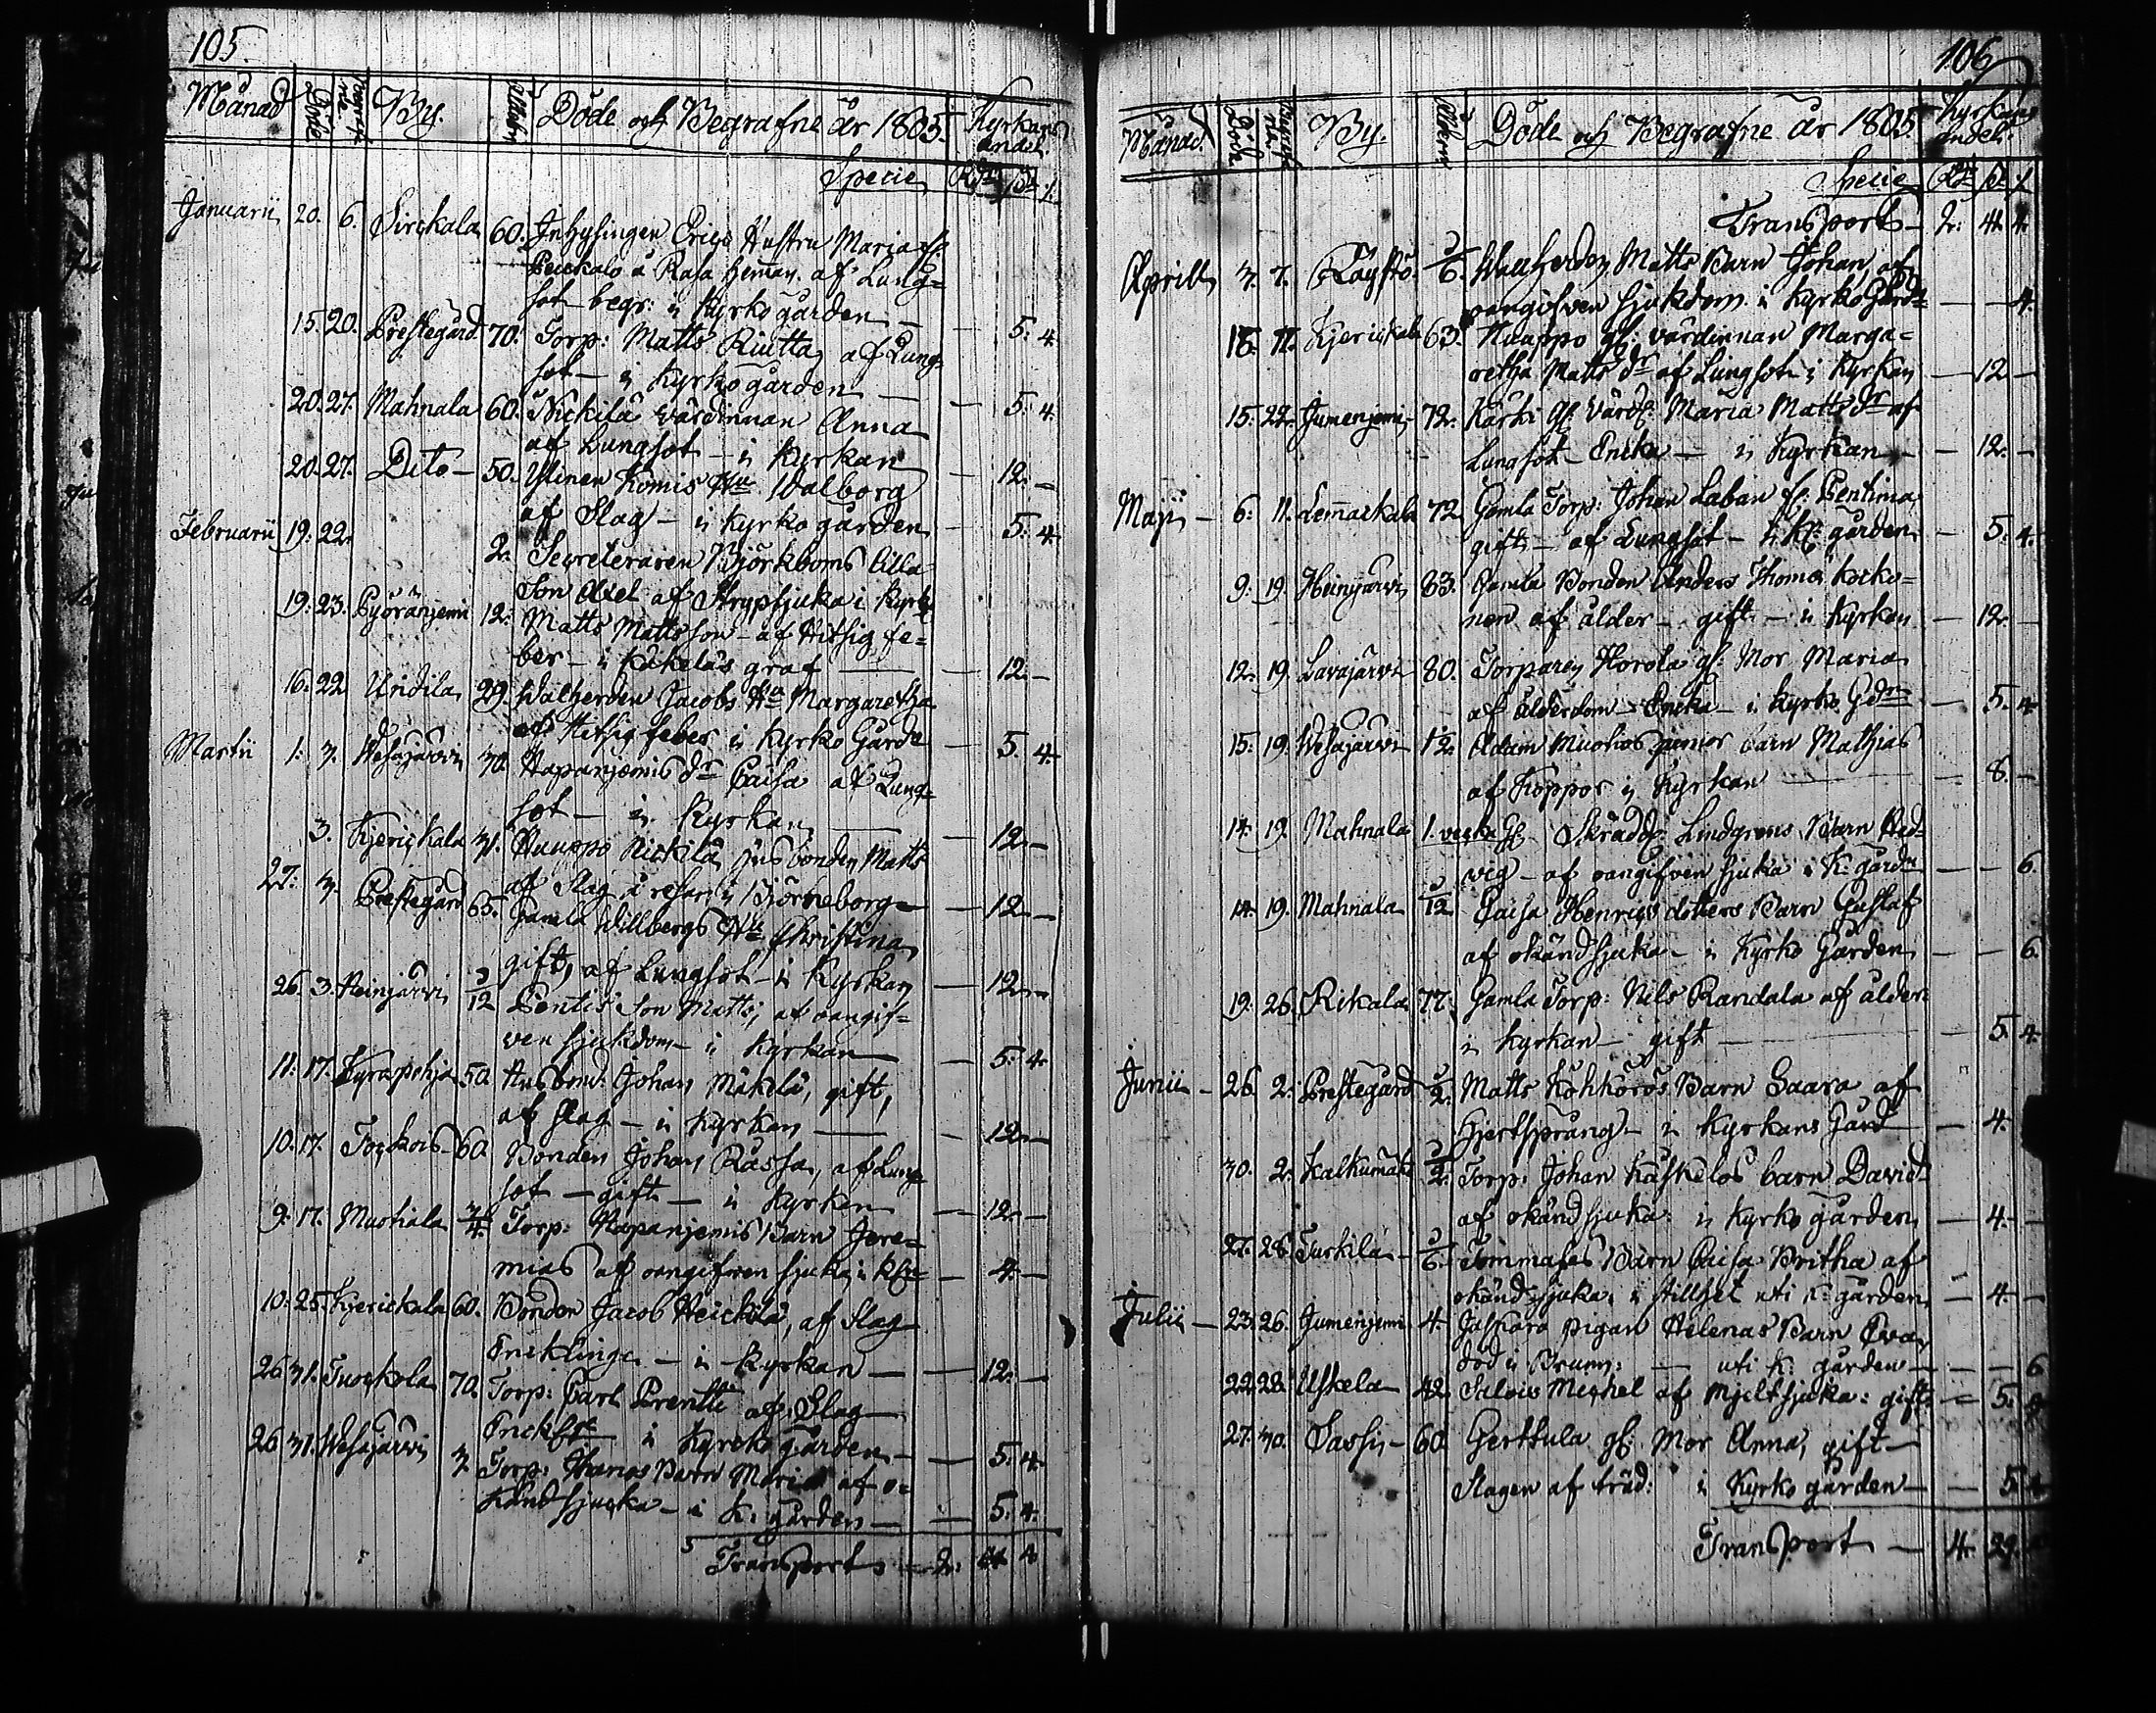 105.
Månad Döde Begrafne By. Ålder Döde och Begrafne År 1805. Kyrkans
andel.
Specie R
Januarii 20. 6. Sirckala 60. Inhysingen Erics Hustru Maria
å Rasa heman. af Lung=
sot begr: i Kyrkogården —
15. 20. Prestegård 70. Torp: Matts Riutta af Lung= 5. 4.
sot — i Kyrkogården —
20. 27. Mahnala 60. Nickilä värdinnan Anna 5. 4.
af Lungsot — i Kyrkan
20. 27. Dito — 50. Ylinen Komis Hu Walborg — 12. —
af Slag — i Kyrkogården — 5. 4.
Februarii 19. 22. 2. Secreteraren Björkboms lilla
Son Axel af Strypsjuka i Kyrk
19. 23. Pyöräniemi 12. Matts Mattsson — af Hitsig fe=
ber — i Käkeläs graf — 12. —
16. 22 Uridila 29. Walherden Jacobs Hu Margaretha
af Hitsig feber i Kyrko Gårdn — 5. 4.
Martii 1. 3. Wesajärvi 30. Hapaniemis dr Caisa af Lung=
sot — i Kyrkan — 12. —
3. Kjerickala 31. Huuppo Nickilä husbonden Matts
af Slag å resan i Björneborg — 12. —
27. 3. Prestegård 65. Gamla Willbergs Hu Christina
gift, af Lungsot i Kyrkan — 12. —
26. 3. Heinjärvi 3/12 Pentis Son Matts, af oangif=
ven sjukdom — i Kyrkan — 5. 4.
11. 17. Kyröspohja 50. Husbond: Johan Mäkelä, gift,
af Slag — i Kyrkan — 12. —
10. 17. 60. Bonden Johan Rässa, af Lung
sot — gift — i Kyrkan — 12. —
9. 17. Mustiala 3/4. Torp: Hapaniemis Barn Jere=
mias af oangifven sjuka i — 4. —
10. 25. Kjerickala 60. Bonden Jacob Heickilä, af Slag
Encklinge — i Kyrkan — 12. —
26 31. Tuockola 70. Torp: Carl Prentti af Slag
i Kyrko gården — 5. 4.
26 31. Wesajärvi 3. Torp: Barn Maria af o=
känd sjucka — i K. gården — 5. 4.
Transport — 2. 44 4
106
Månad. Döde Begrafne By. Ålder Döde och Begrafne År 1805. Kyrkans
andel.
Specie R
Transport — 2. 44. 4.
Aprill 3. 7. Röyhiö 3/6. Wallherden Matts Barn Johan, af
oangifven sjukdom i Kyrko Gårdn — 4.
18. 11. Kjerickala 63. Huuppo gl: värdinnan Marga=
retha Matts dr af Lungsot i Kyrkan — 12 —
15. 22. Jumeniemi 72. Karhi gl värd: Maria Matts dr af
Lungsot Encka — i Kyrkan — 12. —
Maji — 6. 11. Lemackala 72 Gamla Torp: Johan Laban fr: Pentima
gift — af Lungsot — i K: gården — 5. 4.
9. 19. Heinijärvi 83. Gamla Bonden Anders Thomas Kocko=
nen af ålder — gift — i Kyrkan — 12. —
12. 19. Lavajärvi 80. Torparen Horola gl: Mor Maria
af ålderdom — Encka — i Kyrko Gdn — 5. 4.
15. 19. Wesajärvi 1/2. Adam Muotios junior barn Mathias
af Koppor i Kyrkan — 8. —
14. 19. Mahnala 1. vecka gl. Skrädd: Lindgrens Barn Hed=
vig — af oangifven sjuka i K. gårdn — 6.
14. 19. Mahnala 3/12 Caisa Henrics dotters Barn Gustaf
af okänd sjuka — i Kyrko Gården — 6.
19. 26. Rikala 77. Gamla Torp: Nils Randala af ålder
i Kyrkan — gift — 5. 4.
Junii — 26 2. Prestegård 3/2. Matts Kohkörös Barn Saara af
Hjertsprång — i Kyrkans Gård — 4.
30. 2. Kalkunmäki 3/2. Torp: Johan Käskelös barn David
af okänd sjuka i Kyrko gården — 4. —
27. 28. Turkila — 3/6. Tommases Barn Caisa Britha af
okänd sjuka i stillhet uti K: gården — 4. —
Julii — 23. 26. Jumeniemi 4. Jaskara pigan Helenas Barn Eva
död i Brunn: — uti K: gården — 6
22. 28. Uskela 42. Salvis Michel af Mjeltsjuka: gift — 5. 4.
27. 30. Sassi — 60. Gerttula gl: Mor Anna, gift —
Slagen af träd: i Kyrko gården — 5. 4.
Transport — 4. 29.